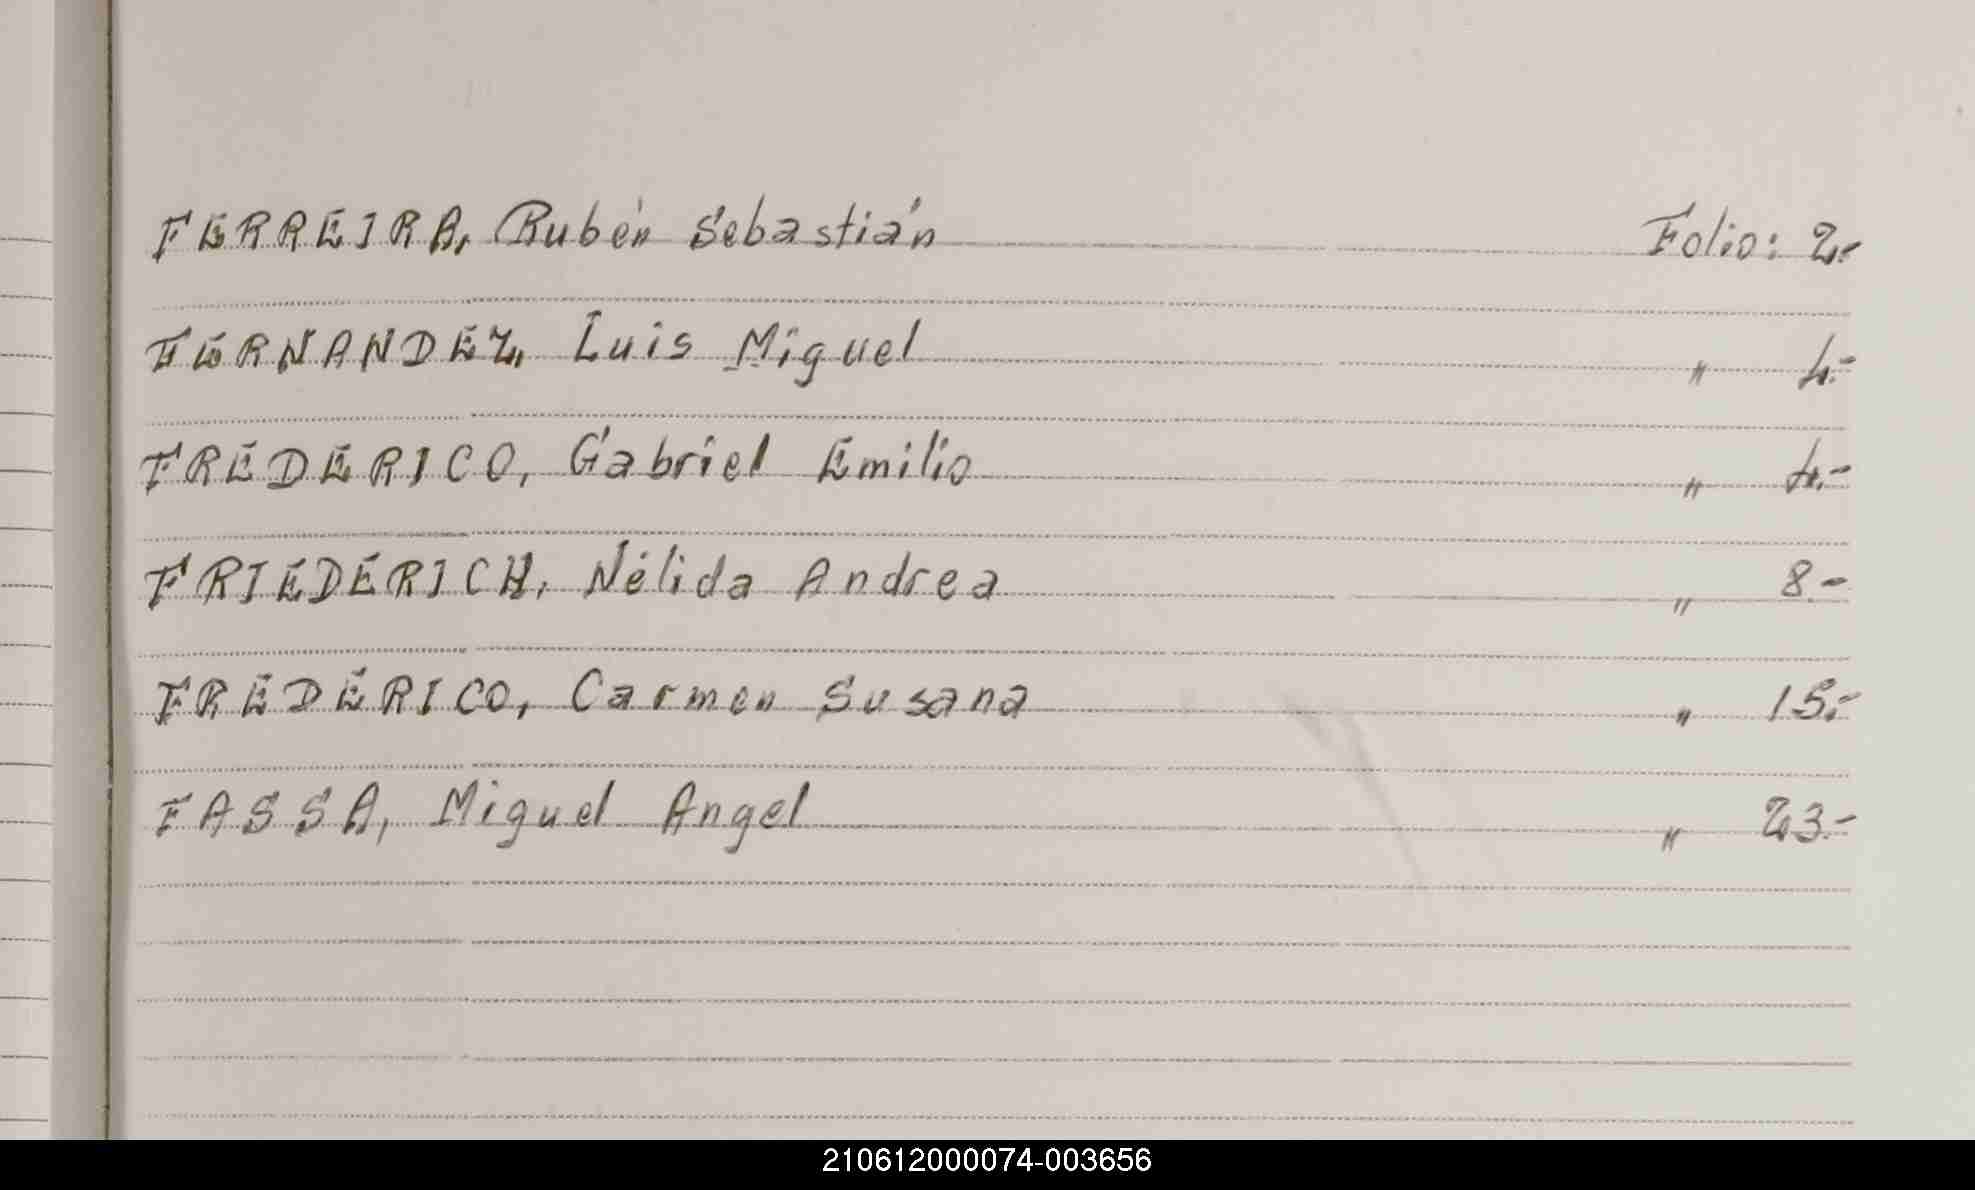 FERREIRA, Rubén Sebastián Folio: 2.-
FERNANDEZ, Luis Miguel " 4.-
FREDERICO, Gabriel Emilio " 4.-
FRIEDERICH, Nélida Andrea " 8.-
FREDERICO, Carmen Susana " 15.-
FASSA, Miguel Angel " 23.-
210612000074-003656